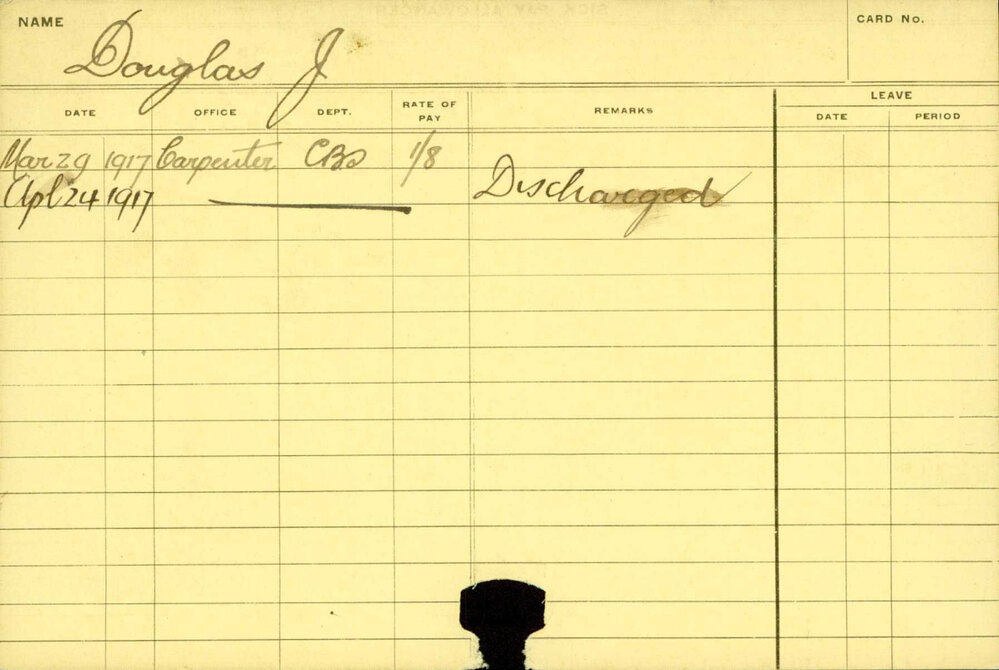 NAME
CARD No.
Douglas J
DATE OFFICE DEPT. RATE OF PAY REMARKS LEAVE
DATE PERIOD
Mar 29 1917 Carpenter CBs 1/8
Apl 24 1917 Discharged